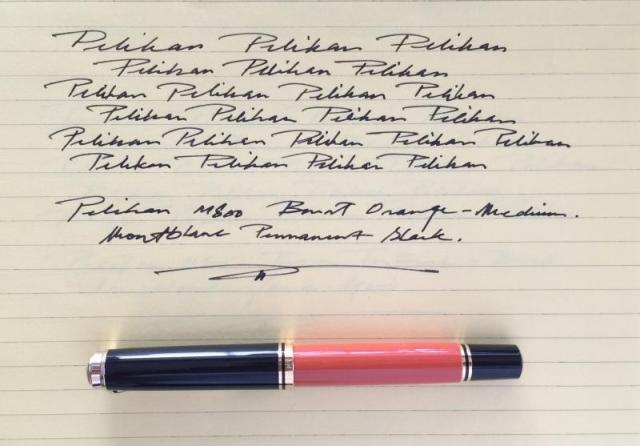 Pelikan Pelikan Pelikan
Pelikan Pelikan Pelikan
Pelikan Pelikan Pelikan Pelikan
Pelikan Pelikan Pelikan Pelikan
Pelikan Pelikan Pelikan Pelikan Pelikan
Pelikan Pelikan Pelikan Pelikan
Pelikan M800 Burnt Orange-Medium.
Montblanc Permanent Black.